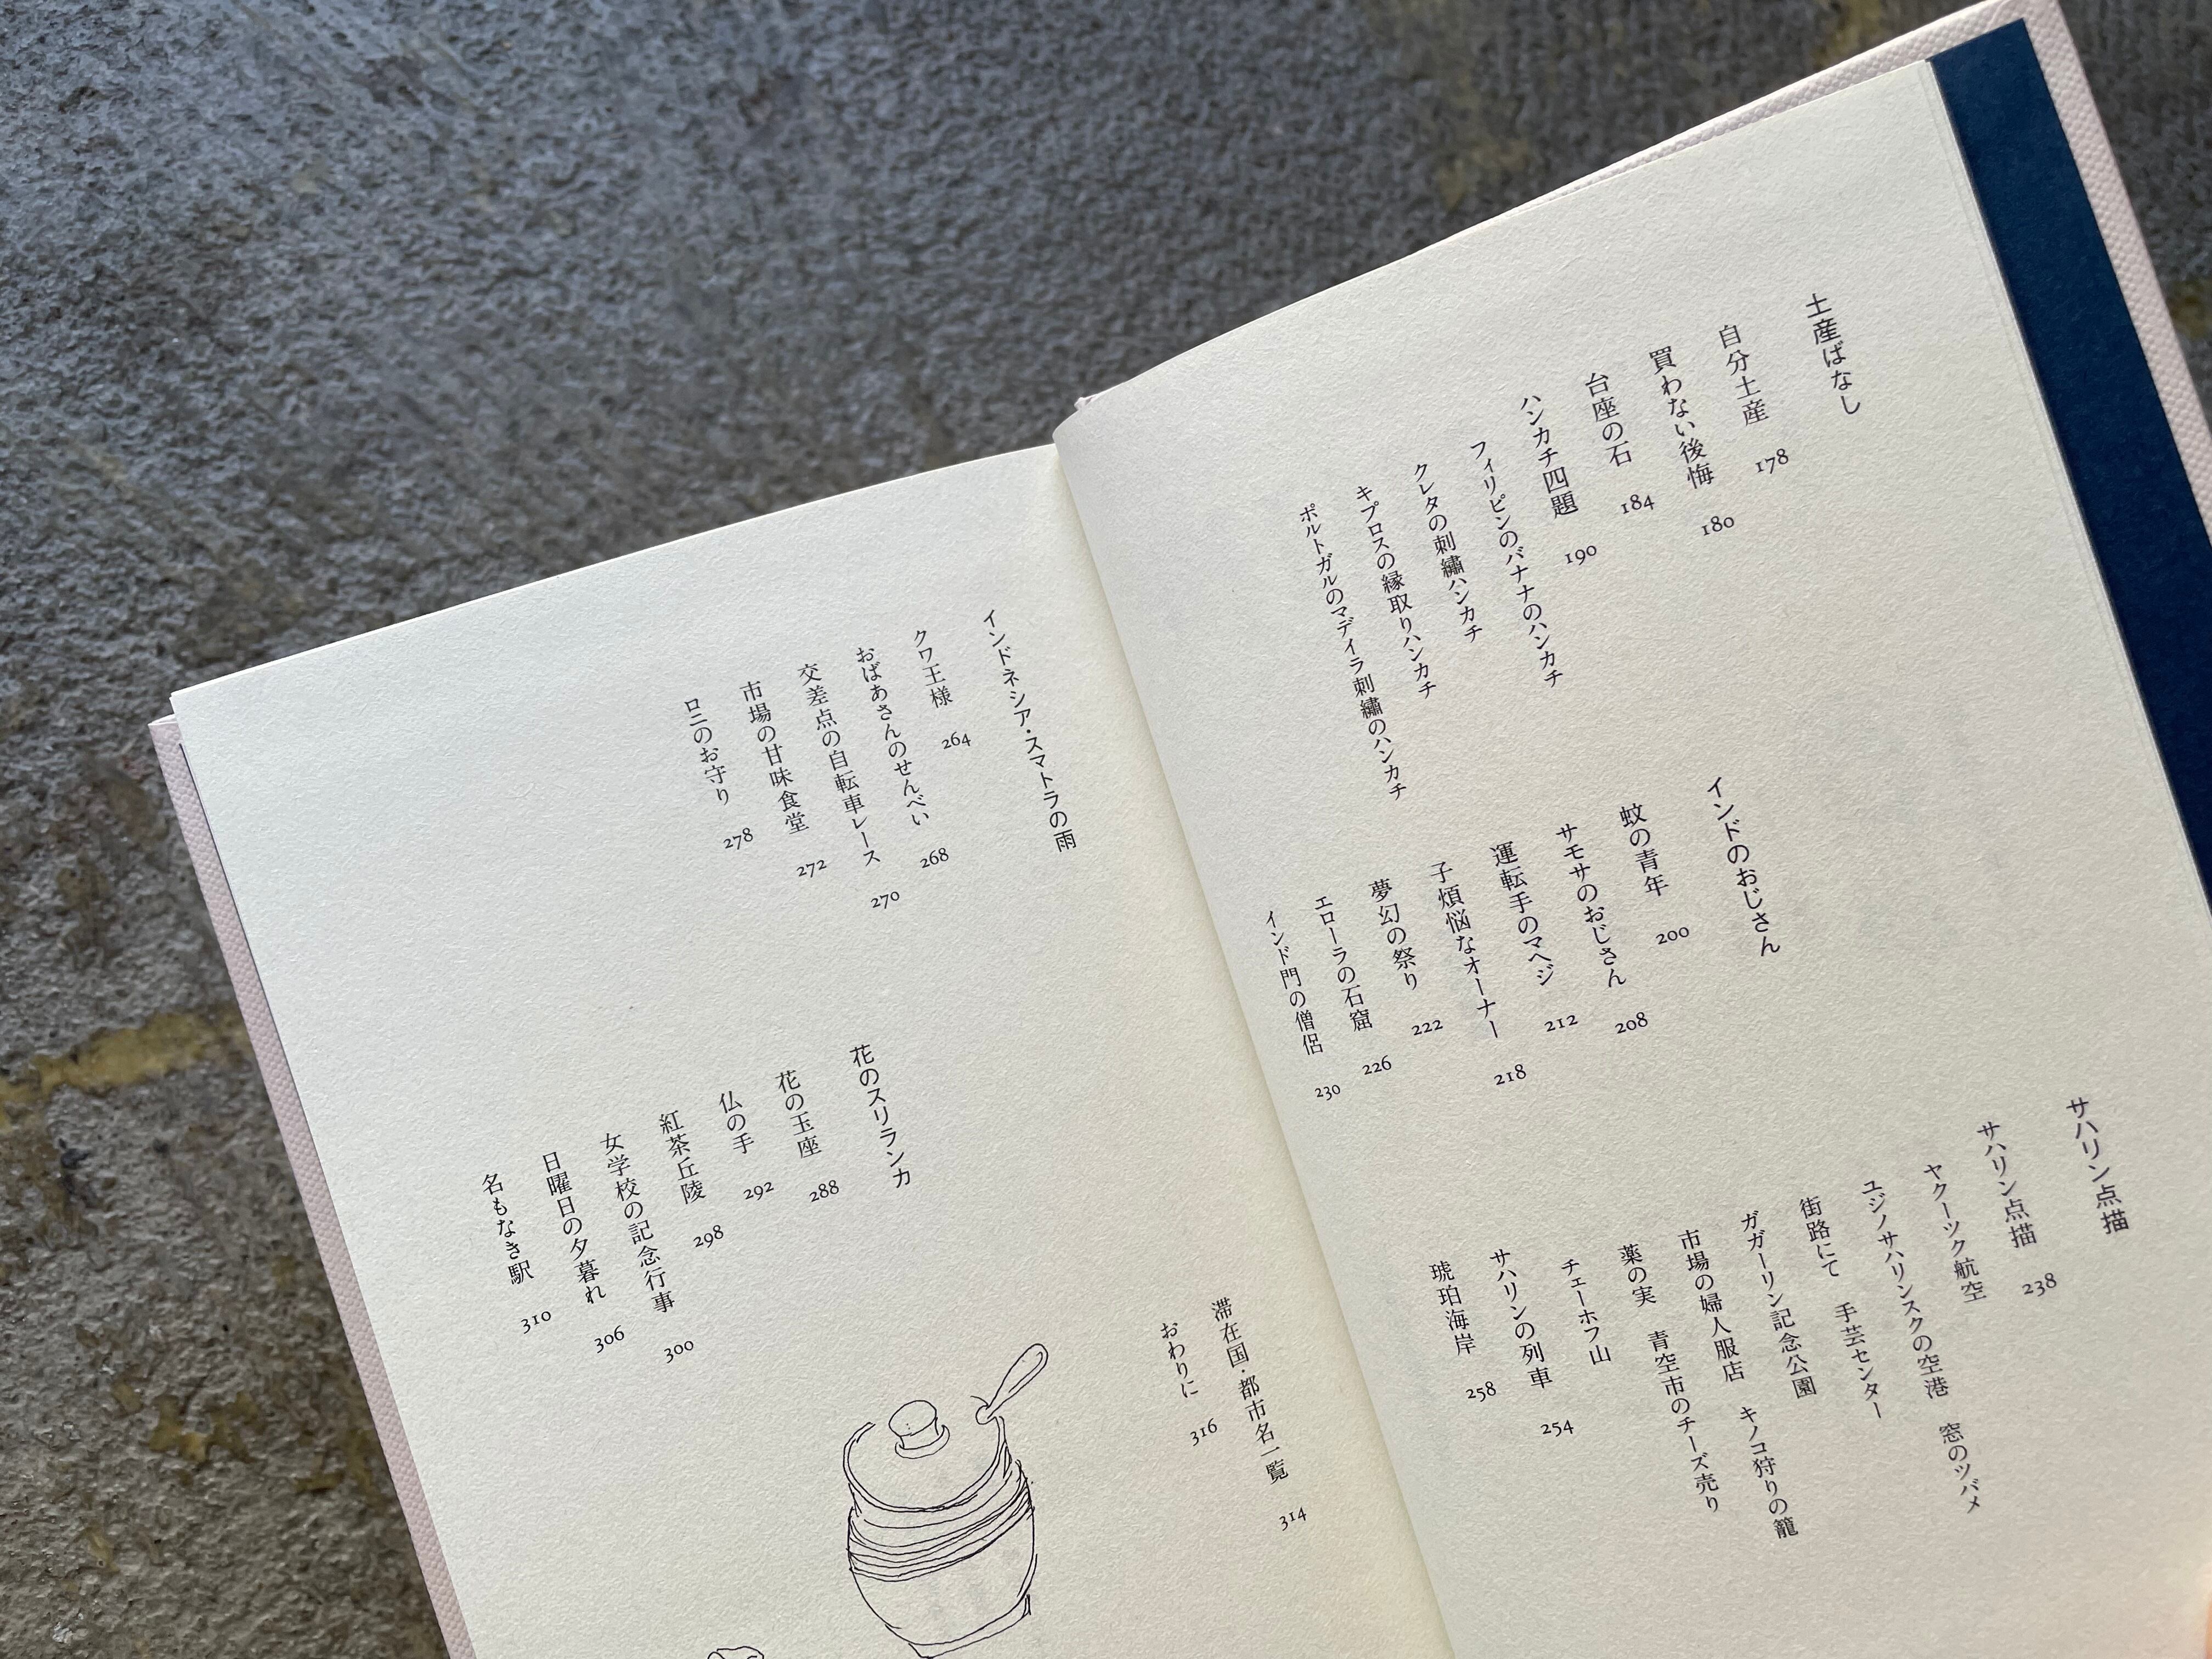 土産ばなし
自分土産 178
買わない後悔 180
台座の石 184
ハンカチ四題 190
フィリピンのバナナのハンカチ
クレタの刺繡ハンカチ
キプロスの縁取りハンカチ
ポルトガルのマデイラ刺繡のハンカチ
インドのおじさん
蚊の青年 200
サモサのおじさん 208
運転手のマヘジ 212
子煩悩なオーナー 218
夢幻の祭り 222
エローラの石窟 226
インド門の僧侶 230
サハリン点描
サハリン点描 238
ヤクーツク航空
ユジノサハリンスクの空港 窓のツバメ
街路にて 手芸センター
ガガーリン記念公園
市場の婦人服店 キノコ狩りの籠
薬の実 青空市のチーズ売り
チェーホフ山
サハリンの列車 254
琥珀海岸 258
インドネシア・スマトラの雨
クワ王様 264
おばあさんのせんべい 268
交差点の自転車レース 270
市場の甘味食堂 272
ロニのお守り 278
花のスリランカ
花の玉座 288
仏の手 292
紅茶丘陵 298
女学校の記念行事 300
日曜日の夕暮れ 306
名もなき駅 310
滞在国・都市名一覧 314
おわりに 316